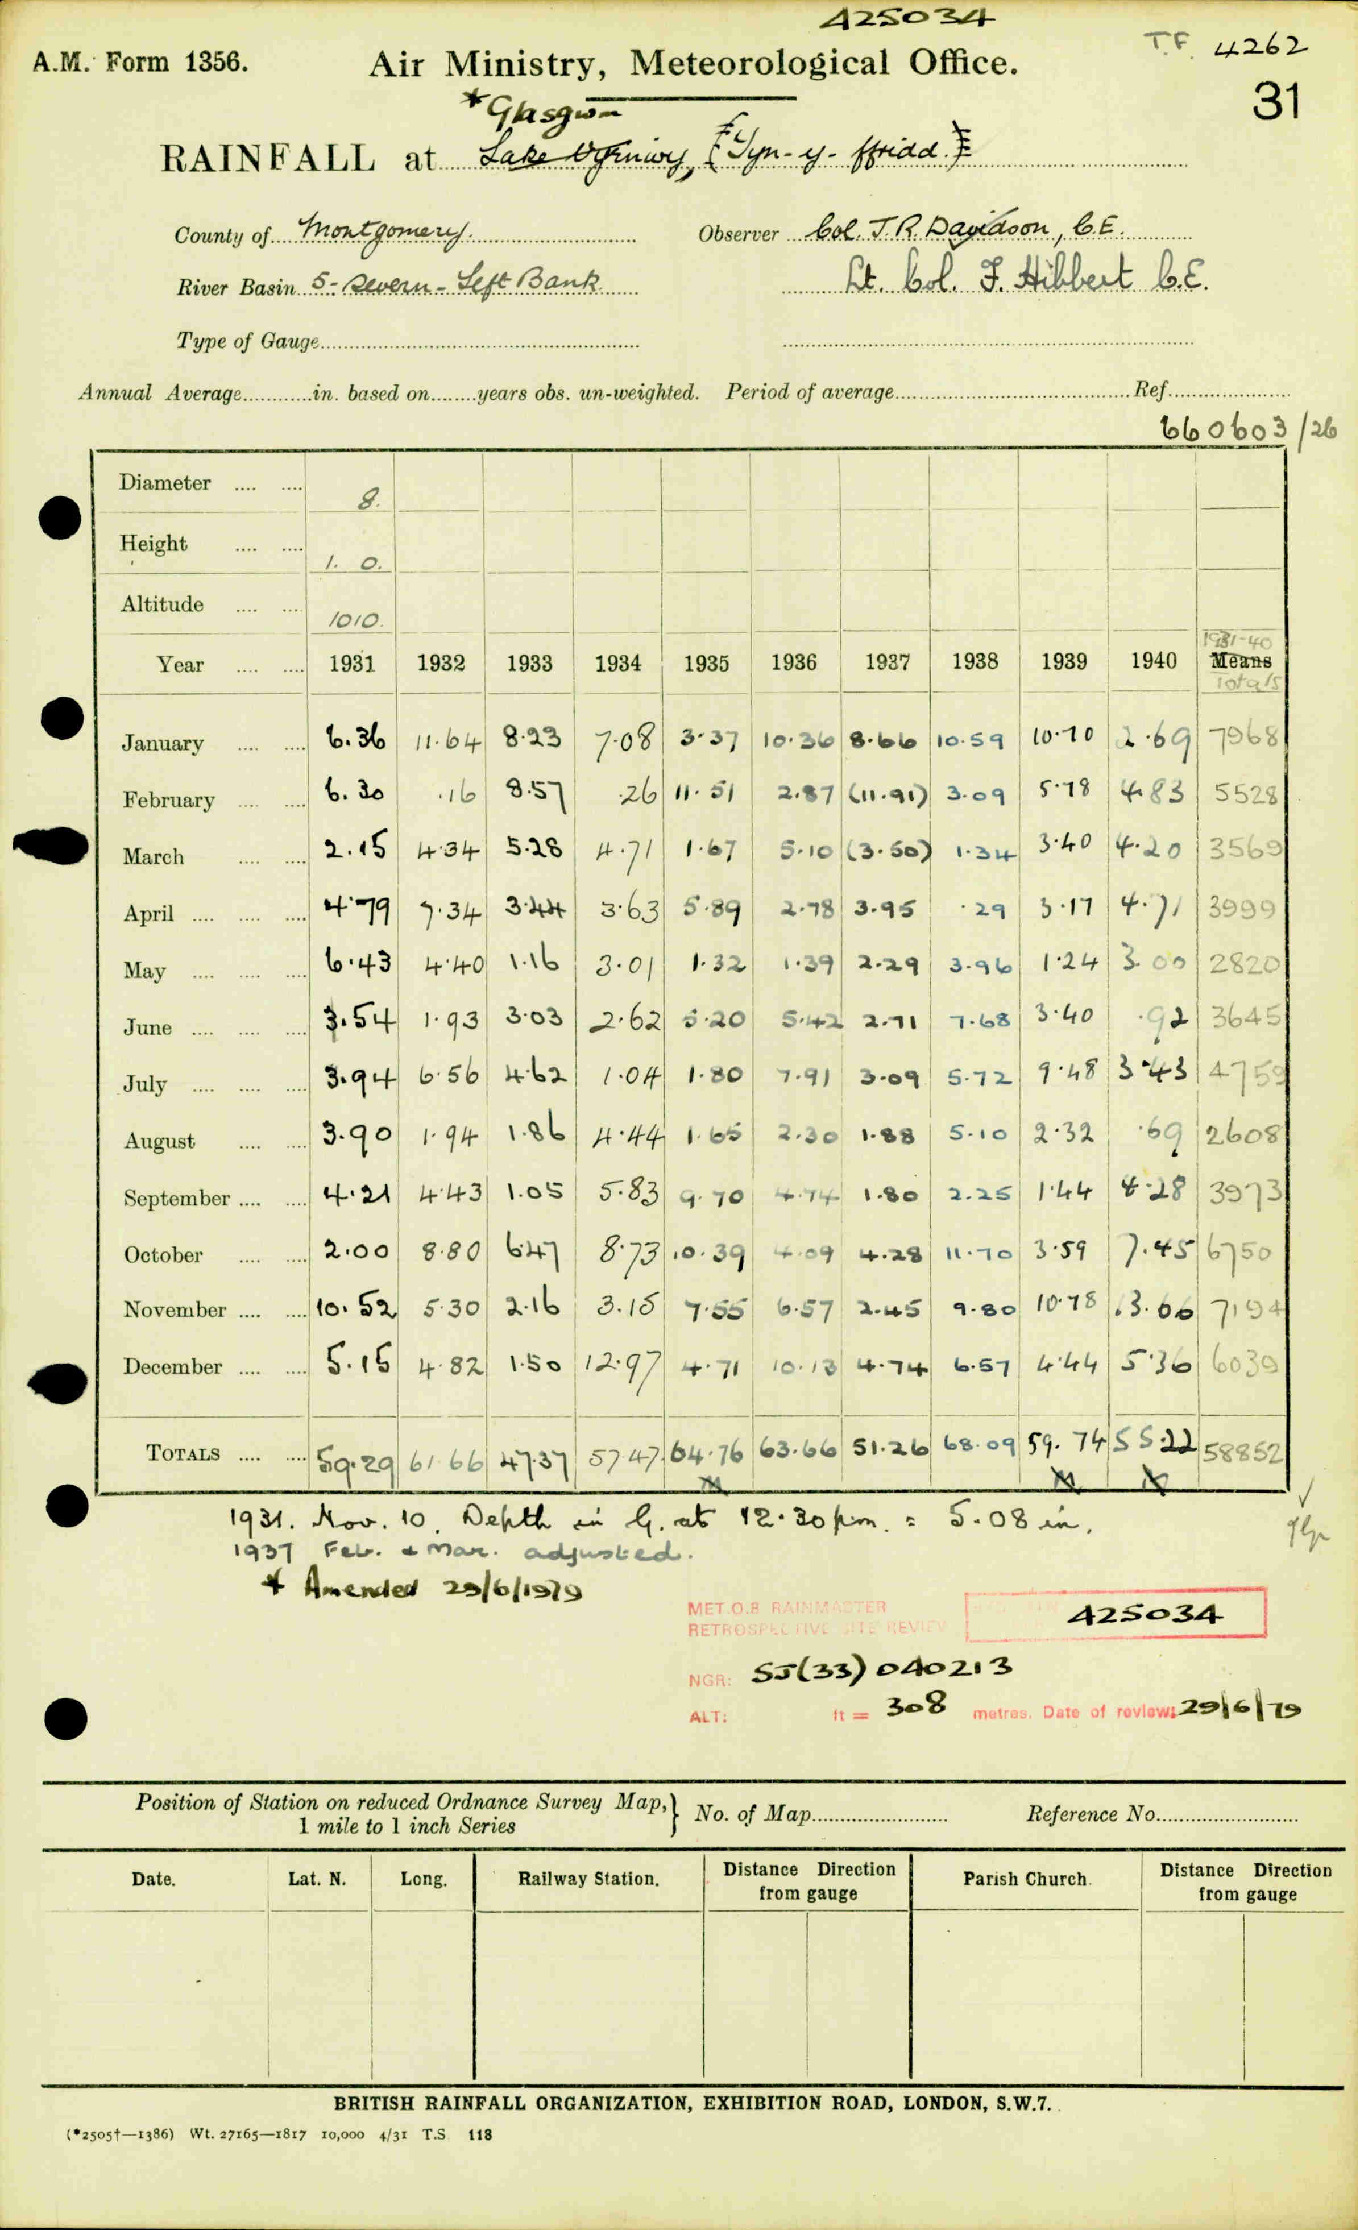 425034
T.F. 4262
A.M. Form 1356. Air Ministry, Meteorological Office.
31
*Glasgwm
RAINFALL at Lake Vyrnwy, (Tyn-y-ffridd.)
County of Montgomery. Observer Col. J. R. Davidson, C.E.
River Basin 5-Severn-Left Bank Lt. Col. F. Hibbert C.E.
Type of Gauge
Annual Average in. based on years obs. un-weighted. Period of average Ref.
660603/26
Diameter 8.
Height 1. 0.
Altitude 1010.
1931-40
Year 1931 1932 1933 1934 1935 1936 1937 1938 1939 1940 Means
Totals
January 6.36 11.64 8.23 7.08 3.37 10.36 8.66 10.59 10.70 2.69 7968
February 6.30 .16 8.57 .26 11.51 2.87 (11.91) 3.09 5.78 4.83 5528
March 2.15 4.34 5.28 4.71 1.67 5.10 (3.50) 1.34 3.40 4.20 3569
April 4.79 7.34 3.44 3.63 5.89 2.78 3.95 .29 3.17 4.71 3999
May 6.43 4.40 1.16 3.01 1.32 1.39 2.29 3.96 1.24 3.00 2820
June 3.54 1.93 3.03 2.62 5.20 5.42 2.71 7.68 3.40 .92 3645
July 3.94 6.56 4.62 1.04 1.80 7.91 3.09 5.72 9.48 3.43 4759
August 3.90 1.94 1.86 4.44 1.65 2.30 1.88 5.10 2.32 .69 2608
September 4.21 4.43 1.05 5.83 9.70 4.74 1.80 2.25 1.44 4.28 3973
October 2.00 8.80 6.47 8.73 10.39 4.09 4.28 11.70 3.59 7.45 6750
November 10.52 5.30 2.16 3.15 7.55 6.57 2.45 9.80 10.78 13.66 7194
December 5.15 4.82 1.50 12.97 4.71 10.13 4.74 6.57 4.44 5.36 6039
TOTALS 59.29 61.66 47.37 57.47 64.76 63.66 51.26 68.09 59.74 55.22 58852
1931. Nov. 10. Depth in G. at 12.30 p.m. = 5.08 in.
1937 Feb. & Mar. adjusted.
* Amended 29/6/1979
MET.O.8 RAINMASTER
RETROSPECTIVE SITE REVIEW
425034
NGR: SJ(33) 040213
ALT: ft = 308 metres. Date of review: 29/6/79
Position of Station on reduced Ordnance Survey Map, } No. of Map Reference No.
1 mile to 1 inch Series
Date. Lat. N. Long. Railway Station. Distance Direction from gauge Parish Church. Distance Direction from gauge
BRITISH RAINFALL ORGANIZATION, EXHIBITION ROAD, LONDON, S.W.7.
(*2505†—1386) Wt. 27165—1817 10,000 4/31 T.S. 118